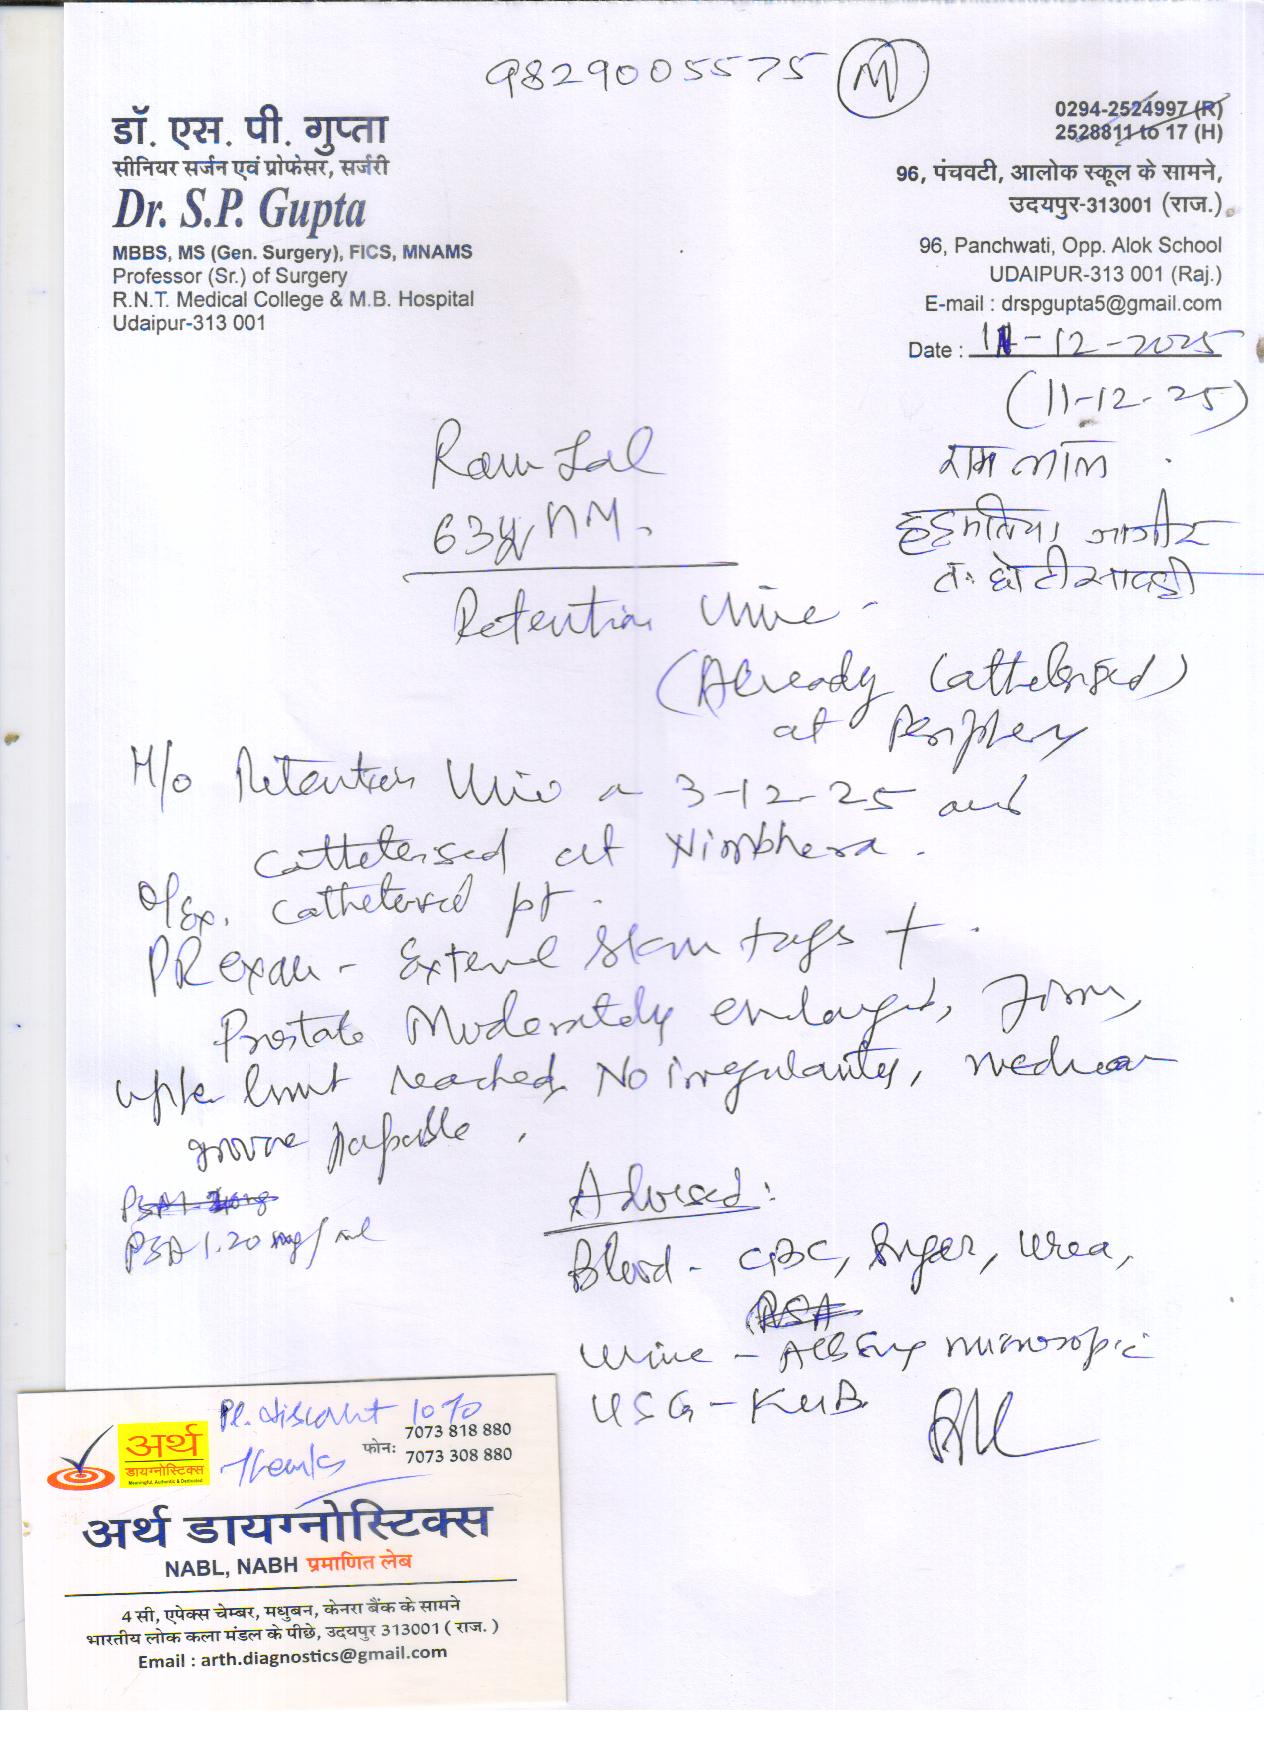 9829005575 (M)
डॉ. एस. पी. गुप्ता
सीनियर सर्जन एवं प्रोफेसर, सर्जरी
Dr. S.P. Gupta
MBBS, MS (Gen. Surgery), FICS, MNAMS
Professor (Sr.) of Surgery
R.N.T. Medical College & M.B. Hospital
Udaipur-313 001
0294-2524997 (R)
2528811 to 17 (H)
96, पंचवटी, आलोक स्कूल के सामने,
उदयपुर-313001 (राज.)
96, Panchwati, Opp. Alok School
UDAIPUR-313 001 (Raj.)
E-mail : drspgupta5@gmail.com
Date : 11-12-2025
(11-12-25)
राम लाल
जागीर
त: छोटी सादड़ी
Ram Lal
63y M.
Retention Urine -
(Already Catheterised)
at Periphery
H/o Retention Urine on 3-12-25 and
Catheterised at Nimbhera.
O/Ex. Catheterised pt.
PR exam - External Skin tags +.
Prostate Moderately enlarged, firm,
upper limit reached, No irregularity, median
groove palpable.
PSA 1.20 ng/ml
Advised:
Blood - CBC, Sugar, Urea,
PSA
Urine - Alb Sug microscopic
USG - KUB
Pl. discount 10%
Thanks
अर्थ
डायग्नोस्टिक्स
Meaningful, Authentic & Dedicated
फोन: 7073 818 880
7073 308 880
अर्थ डायग्नोस्टिक्स
NABL, NABH प्रमाणित लेब
4 सी, एपेक्स चेम्बर, मधुबन, केनरा बैंक के सामने
भारतीय लोक कला मंडल के पीछे, उदयपुर 313001 ( राज. )
Email : arth.diagnostics@gmail.com